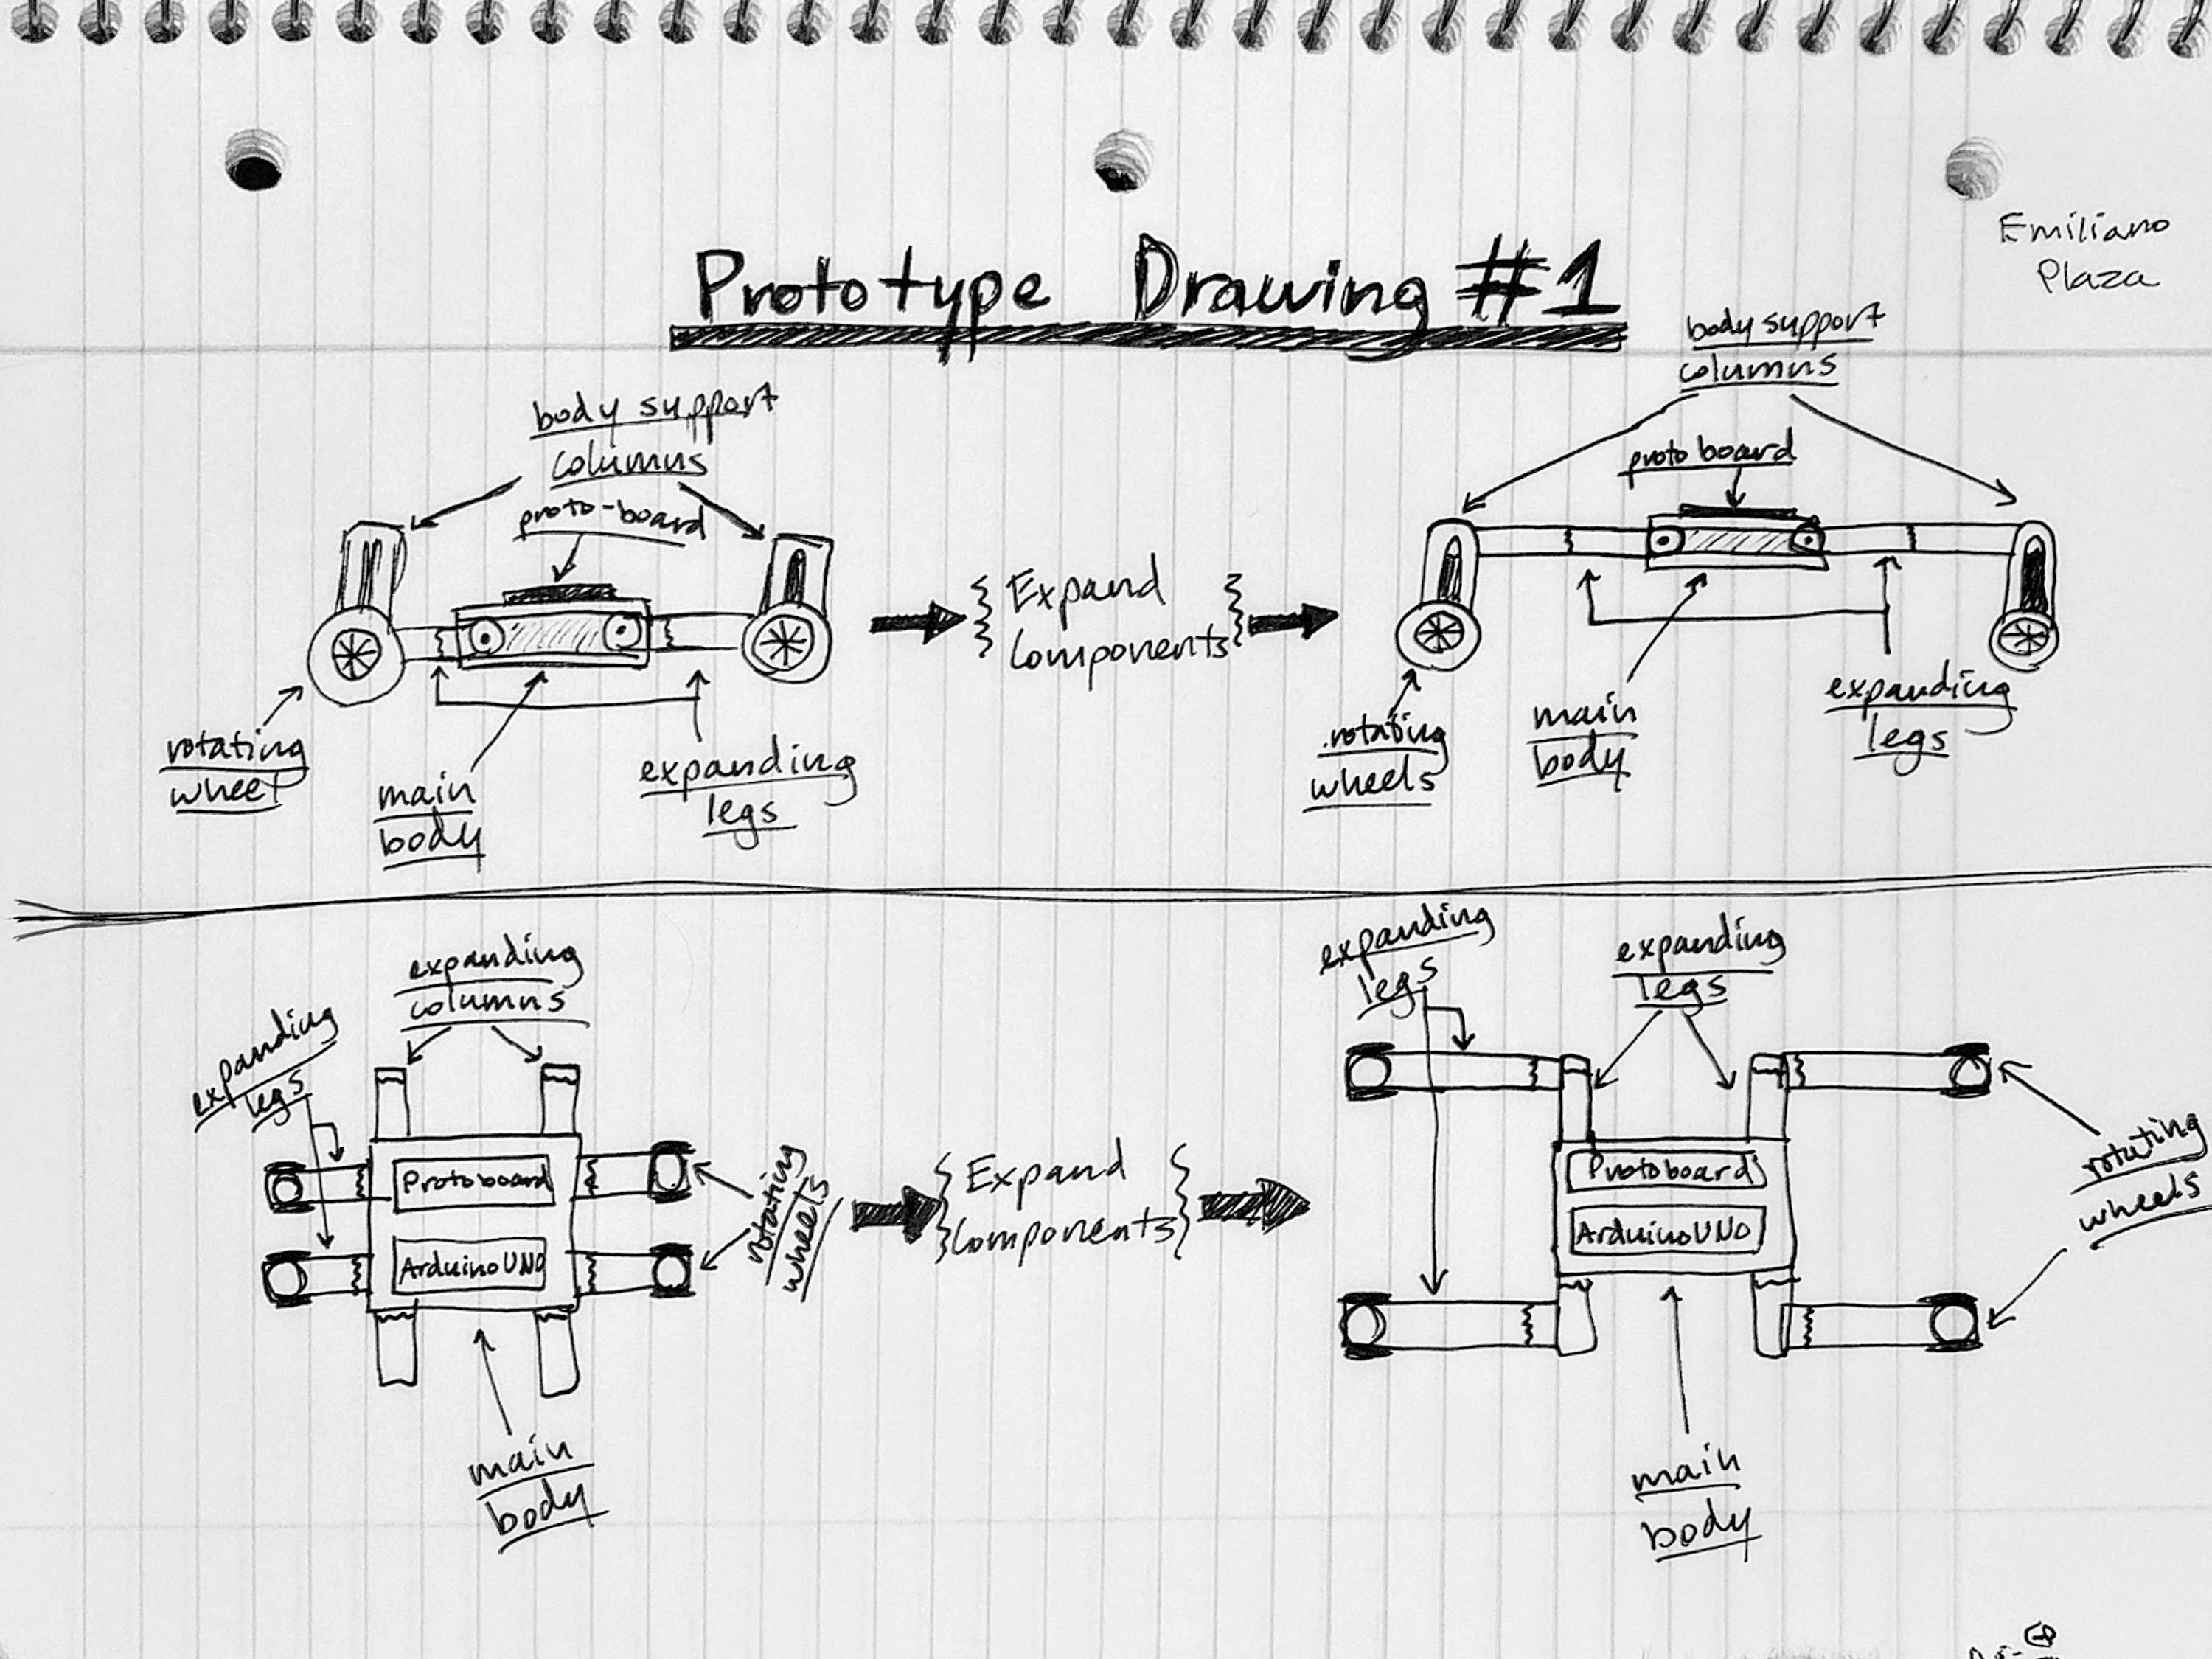 Emiliano
Plaza
Prototype Drawing #1
body support
columns
proto-board
rotating
wheel
main
body
expanding
legs
Expand
Components
body support
columns
proto board
rotating
wheels
main
body
expanding
legs
expanding
columns
expanding
legs
Protoboard
Arduino UNO
rotating
wheels
main
body
Expand
Components
expanding
legs
expanding
legs
Protoboard
Arduino UNO
rotating
wheels
main
body